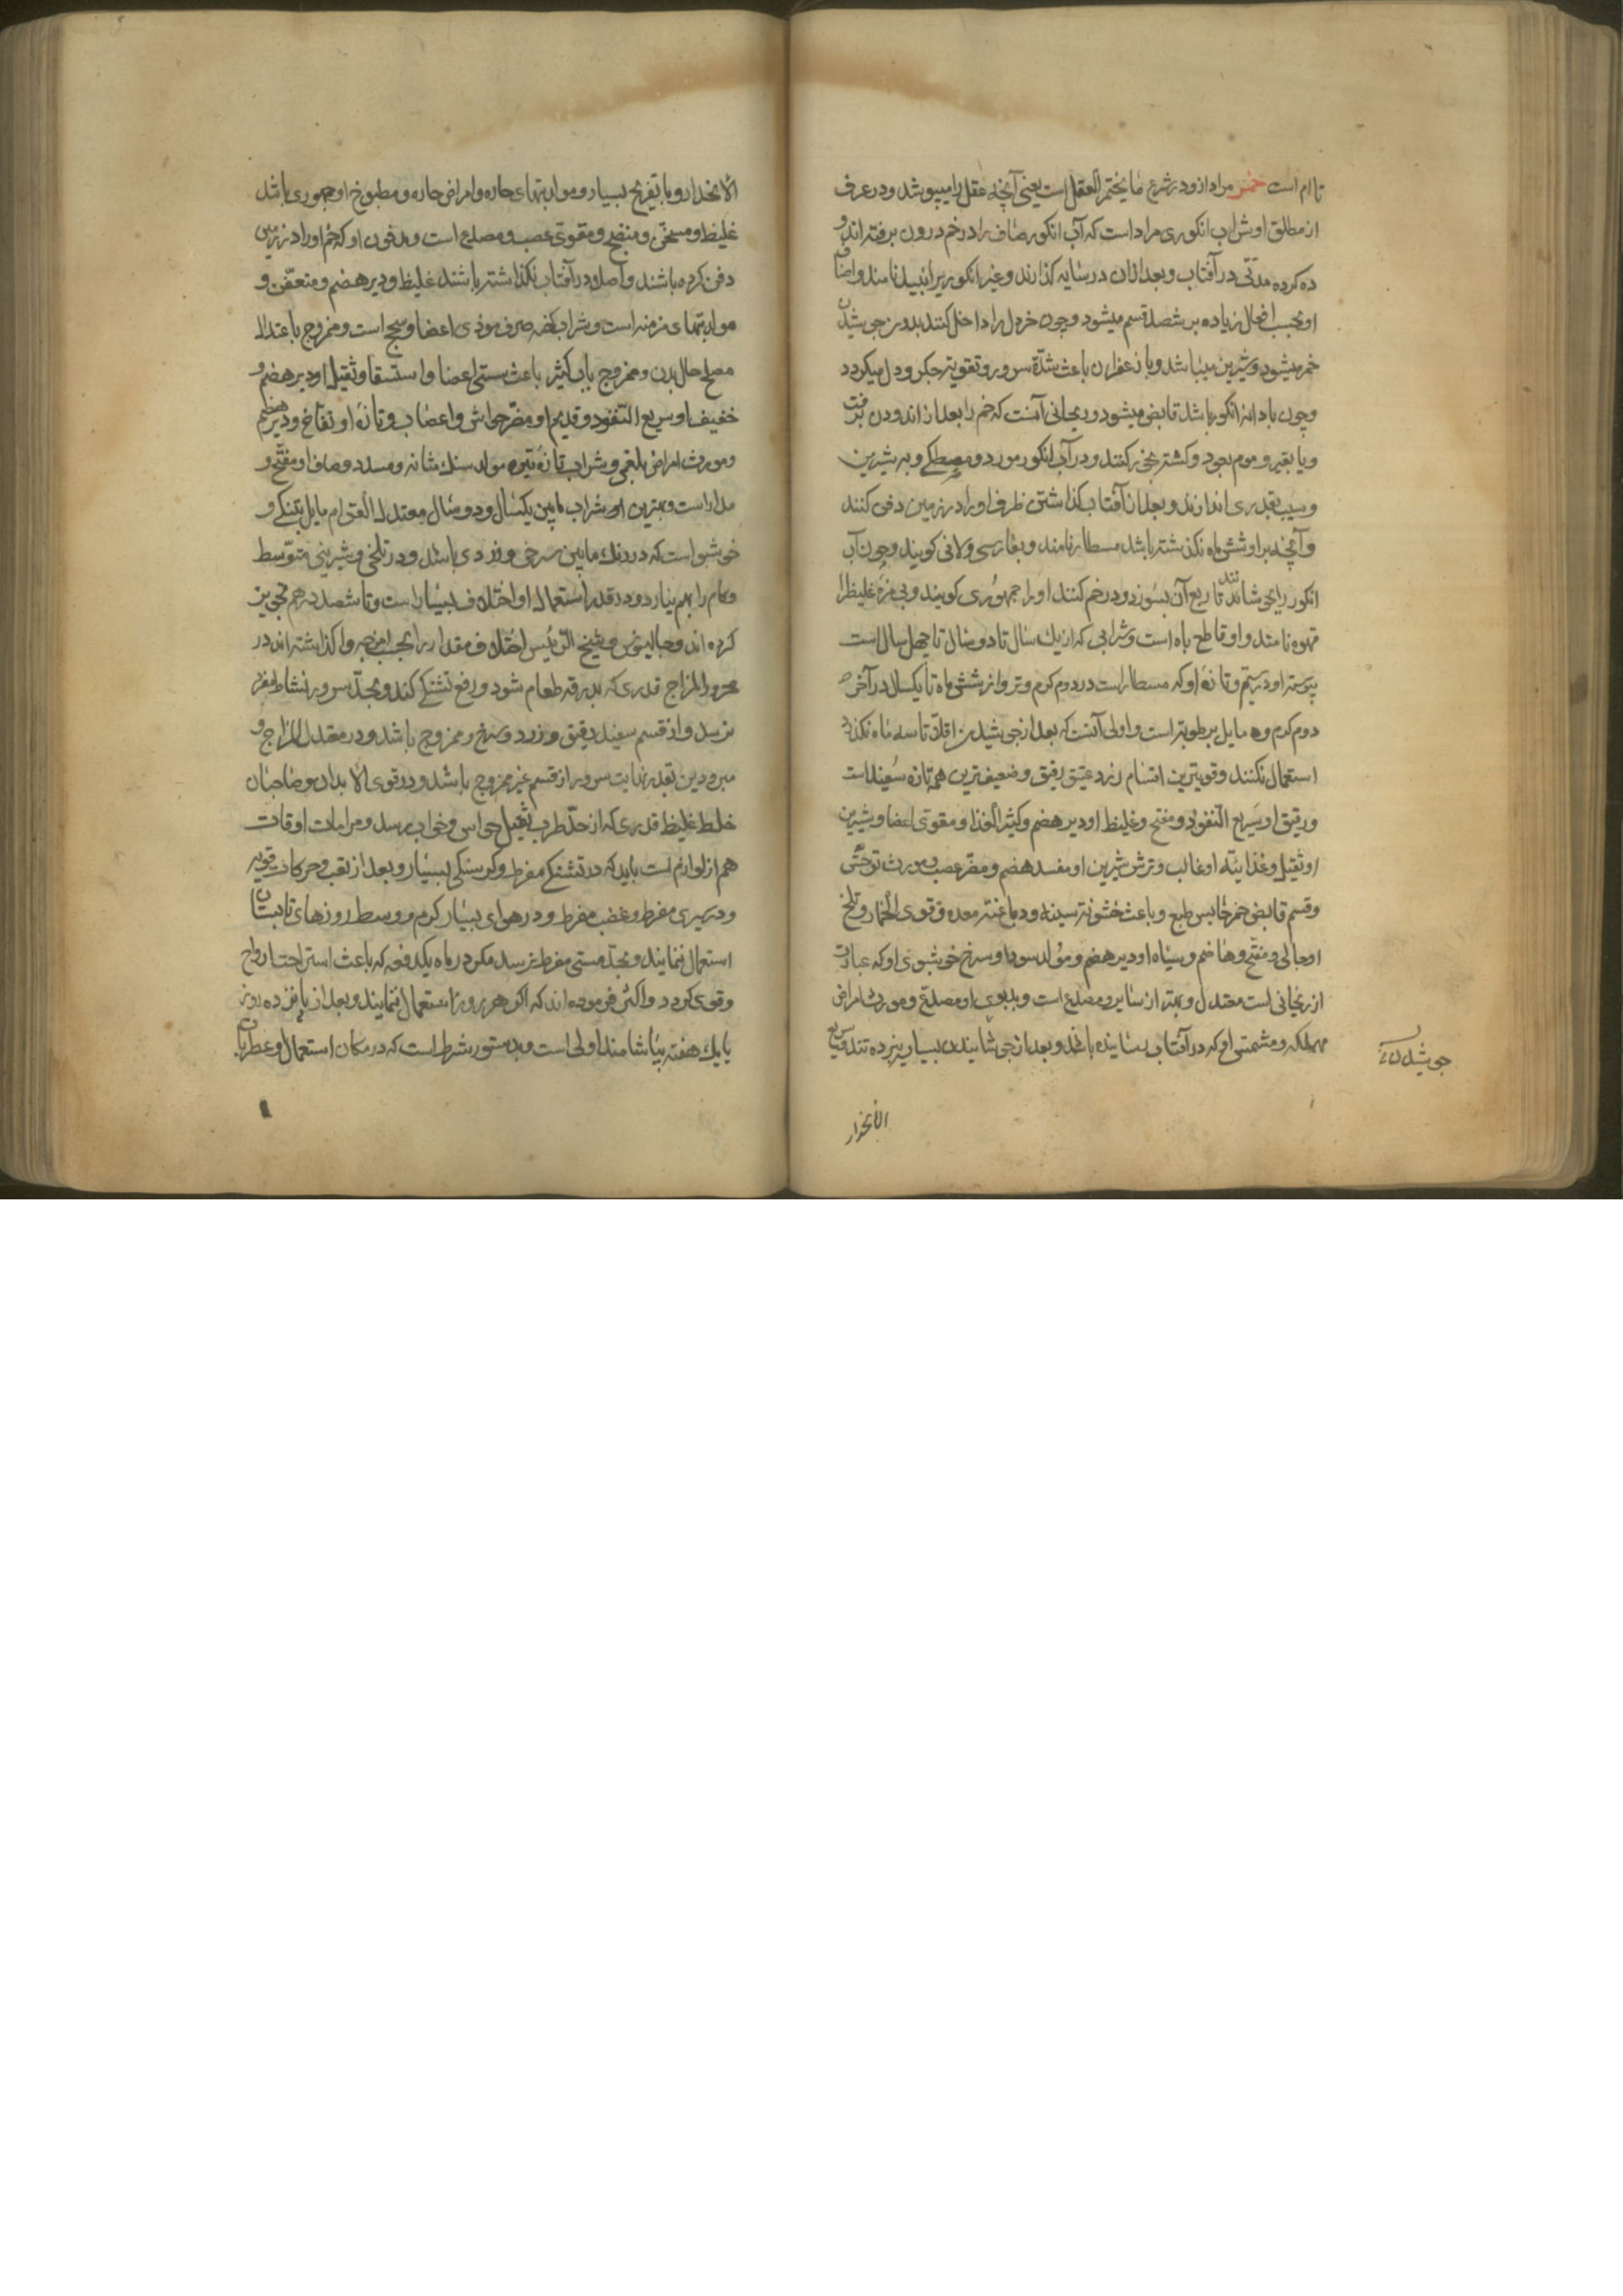 تا ام است خمر مراد ازو در شرع ما یختمر العقل است یعنی آنچه عقل را میپوشد و در عرف
از مطلق او شراب انکوری مراد است که آب انکور صاف را در خم درون برفت اندو
ده کرده مدتی در آفتاب و بعد از ان در سایه کذارند و غیر انکوریرا نبید نامند و اصناف
او بحسب افعال زیاده بر شصد قسم میشود و چون خردل را داخل کنند بدون جوشیدن
خمر میشود و شیرین میباشد و با زعفران باعث شدّة سرور و تقویة جکر و دل میکردد
و چون با دانهٔ انکور باشد قابض میشود و ریحانی آنست که خم را بعد از اندودن برفت
و یا بقیر و موم بعود و کشته بخور کنند و در آب انکور مورد و مصطکی و به شیرین
و سیب بقدری اندازند و بعد از آفتاب کذاشتن ظرف او را در زمین دفن کنند
و آنچه بر او شش ماه نکذشته باشد مسطار نامند و بفارسی ولانی کویند و چون آب
انکور را بجوشانند تا ربع آن بسوزد و در خم کنند او را جمهوری کویند و بی مزهٔ غلیظ را
قهوه نامند و او قاطع باه است و شرابی که از یك سال تا دو سال تا چهل سال است
او در سیّم و تازهٔ او که مسطار است در دوم کرم و تر و از شش ماه تا یکسال در آخر
دوم کرم و مایل برطوبة است و اولی آنست که بعد از جوشیدن اقلّا تا سه ماه نکذرد
استعمال نکنند و قویترین اقسام زرد عتیق رقیق و ضعیف ترین همه تازه سفید است
و رقیق او سریع النفوذ و مفتح و غلیظ او دیر هضم و کثیر الغذا و مقوی اعضا و شیرین
او ثقیل و غذائیّه او غالب و ترش شیرین او مفسد هضم و مضرّ عصب و مورث توحّش
و قسم قابض خمر حابس طبع و باعث خشونة سینه و دباغت معده و قوی الخمار و تلخ
او جالی و مفتّح و هاضم و سیاه او دیر هضم و مولد سودا و سرخ خوشبوی او که عبارت
از ریحانی است معتدل و بهتر از سایر و مصلع است و بدبوی او مصلع و مورث امراض
مهلکه و مشمّس او که در آفتاب رسانیده باشند و بعد از جوشانیدن بسیار تند و سریع
جوشیدن
الانحدار
الانحدار و با تفریح بسیار و مولد تبهای حاره و امراض حاره و مطبوخ او جمهوری باشد
غلیظ و مسخّن و منضج و مقوی عصب و مصلع است و مدفون او که خم او را در زمین
دفن کرده باشند و اصلا در آفتاب نکذاشته باشند غلیظ و دیر هضم و متعفّن و
مولد تبهای مزمنه است و شراب کهنه صرف موذی اعضا و سحج است و ممزوج باعتدال
مصلح حال بدن و ممزوج بآب کثیر باعث سستی اعضا و استسقا و ثقیل او دیر هضم و
خفیف او سریع النّفوذ و قدیم او مضرّ حواس و اعصاب و تازهٔ او نفّاخ و دیر هضم
و مورث امراض بلغمی و شراب تازهٔ تیره مولد سنك مثانه و مسدد و صاف او مفتّح و
مدرّ است و بهترین او شراب مابین یکسال و دو سال معتدل القوام مایل بتنکی و
خوشبو است که در رنك مابین سرخی و زردی باشد و در تلخی و شیرینی متوسط
و کام را بهم نیارد و در قدر استعمال او اختلاف بسیار است و تا شصد درهم تجویز
کرده اند و جالینوس و شیخ الرّئیس اختلاف مقدار را بحسب امزجه واکذاشته اند در
محرور المزاج قدری که بدرقه طعام شود و رفع تشنکی کند و بحدّ سرور نشاط مفرط
نرسد و از قسم سفید رقیق و زرد و سرخ و ممزوج باشد و در معتدل المزاج و
مبرودین بقدر نهایت سرور از قسم غیر ممزوج باشد و در قوی الابدان و صاحبان
خلط غلیظ قدری که از حدّ طرب بثقیل حواس و خواب برسد و مراعات اوقات
هم از لوازم است باید که در تشنکی مفرط و کرسنکی بسیار و بعد از تعب و حرکات قویه
و در سیری مفرط و غضب مفرط و در هوای بسیار کرم و وسط روزهای تابستان
استعمال ننمایند و بحدّ مستی مفرط نرسد مکر در ماه یکدفعه که باعث استراحت ارواح
و قوی کردد و اکثر فرموده اند که اکر هر روز استعمال ننمایند و بعد از پانزده روز
یا یك هفته بیاشامند اولی است و بدستور شرط است که در مکان استعمال او عطریات